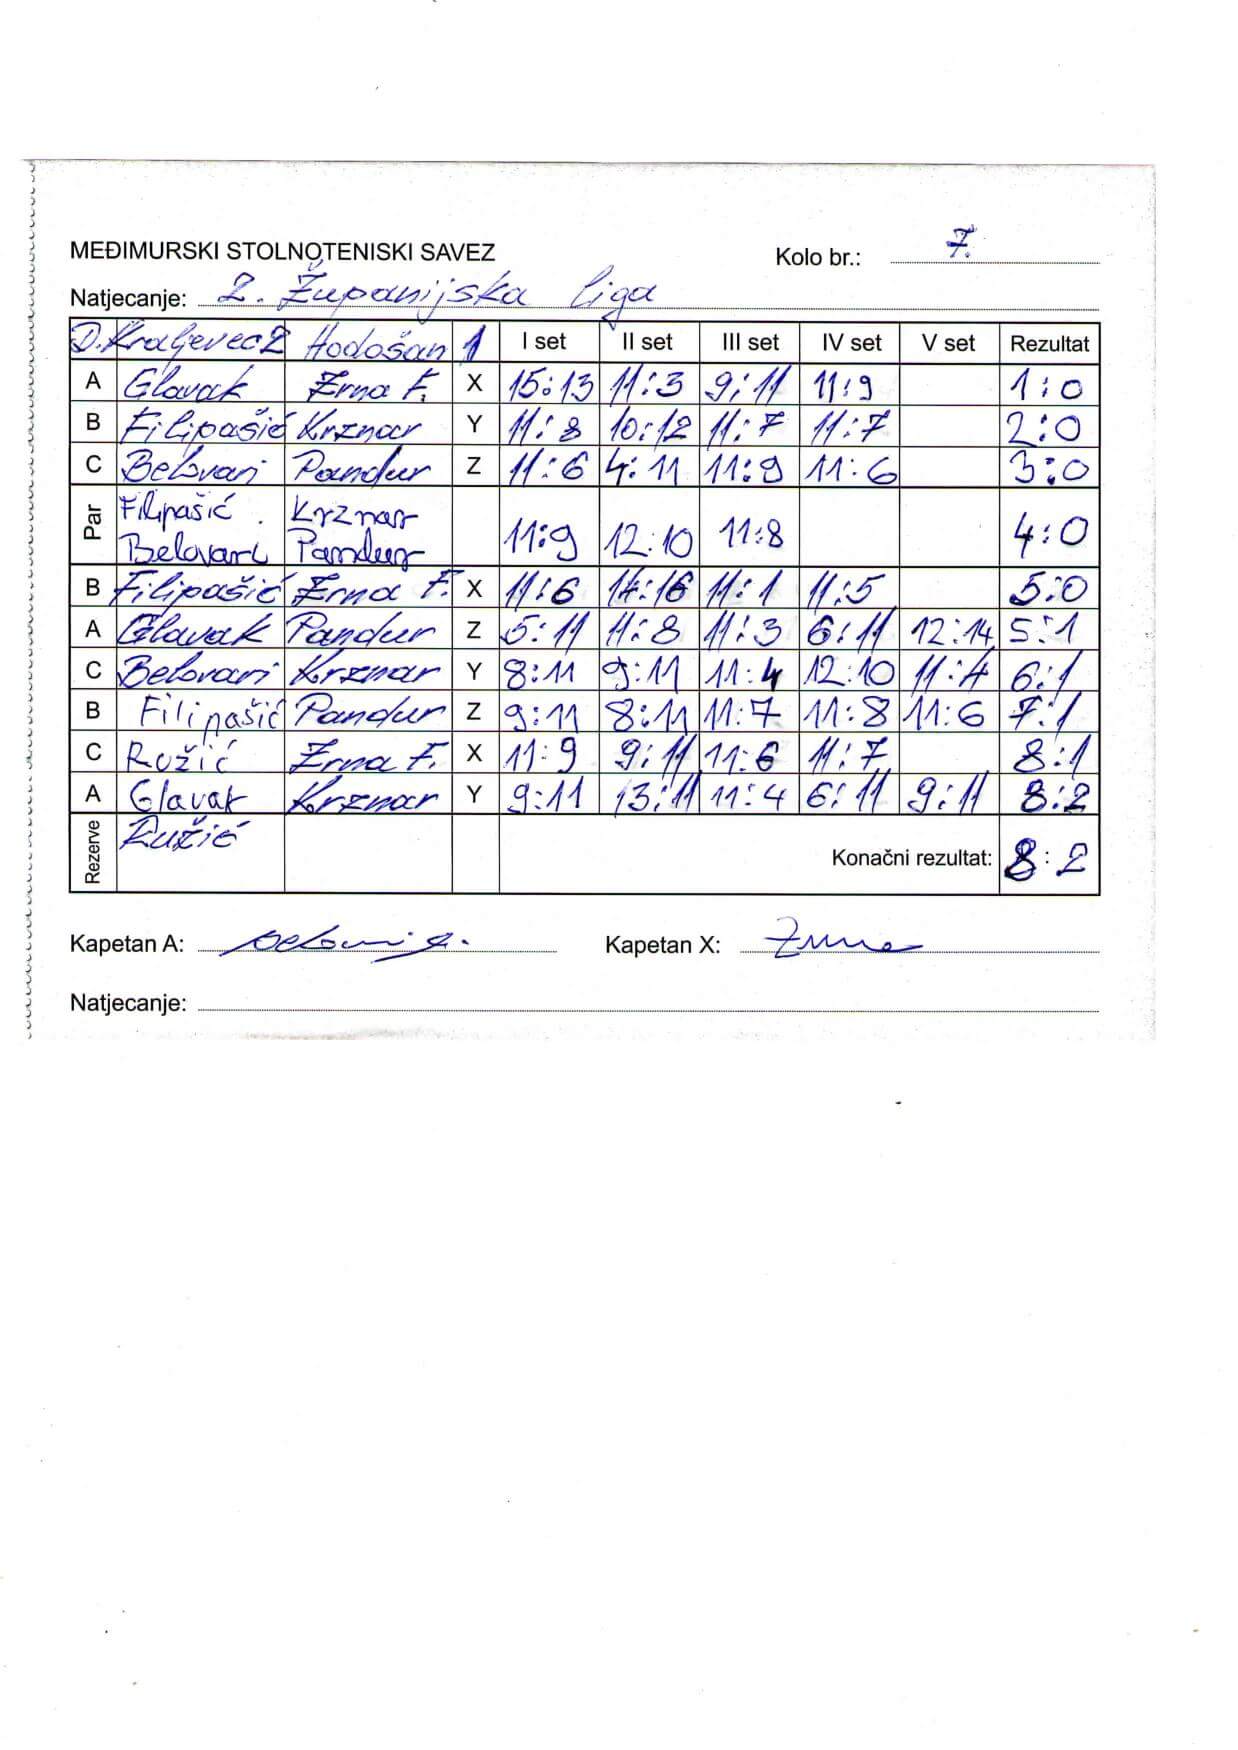 MEĐIMURSKI STOLNOTENISKI SAVEZ Kolo br.: 7.
Natjecanje: 2. Županijska liga
D.Kraljevec 2 Hodošan 1 I set II set III set IV set V set Rezultat
A Glavak Zrna F. X 15:13 11:3 9:11 11:9 1:0
B Filipašić Krznar Y 11:8 10:12 11:7 11:7 2:0
C Belovari Pandur Z 11:6 4:11 11:9 11:6 3:0
Par Filipašić Krznar
Belovari Pandur 11:9 12:10 11:8 4:0
B Filipašić Zrna F. X 11:6 14:16 11:1 11:5 5:0
A Glavak Pandur Z 5:11 11:8 11:3 6:11 12:14 5:1
C Belovari Krznar Y 8:11 9:11 11:4 12:10 11:4 6:1
B Filipašić Pandur Z 9:11 8:11 11:7 11:8 11:6 7:1
C Ružić Zrna F. X 11:9 9:11 11:6 11:7 8:1
A Glavak Krznar Y 9:11 13:11 11:4 6:11 9:11 8:2
Rezerve Ružić Konačni rezultat: 8:2
Kapetan A: Kapetan X:
Natjecanje: